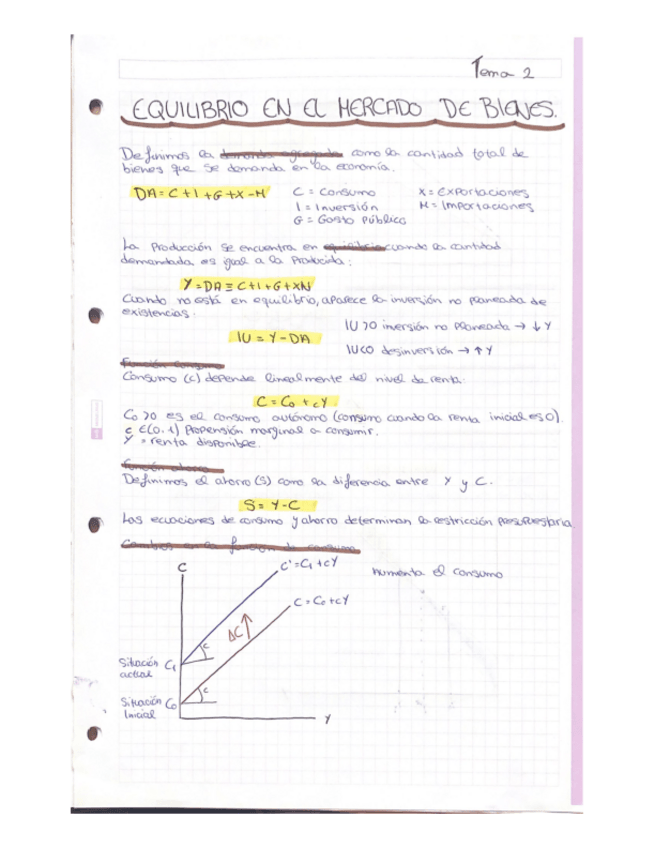 Tema 2
EQUILIBRIO EN EL MERCADO DE BIENES.
Definimos la demanda agregada como la cantidad total de
bienes que se demanda en la economía.
DA = C + I + G + X - M
C = Consumo
I = Inversión
G = Gasto Público
X = Exportaciones
M = Importaciones
La Producción se encuentra en equilibrio cuando la cantidad
demandada es igual a la Producida:
Y = DA ≡ C + I + G + XN
Cuando no está en equilibrio, aparece la inversión no planeada de
existencias.
IU = Y - DA
IU>0 inversión no planeada → ↓ Y
IU<0 desinversión → ↑ Y
Función consumo
Consumo (c) depende linealmente del nivel de renta:
C = C₀ + cY
C₀ >0 es el consumo autónomo (consumo cuando la renta inicial es 0).
c ∈(0,1) Propensión marginal a consumir.
Y = renta disponible.
Función ahorro
Definimos el ahorro (S) como la diferencia entre Y y C.
S = Y - C
Las ecuaciones de consumo y ahorro determinan la restricción presupuestaria.
Cambios en la función de consumo
C
C' = C₁ + cY
aumenta el consumo
C = C₀ + cY
ΔC ↑
c
Situación C₁
actual
c
Situación C₀
Inicial
Y